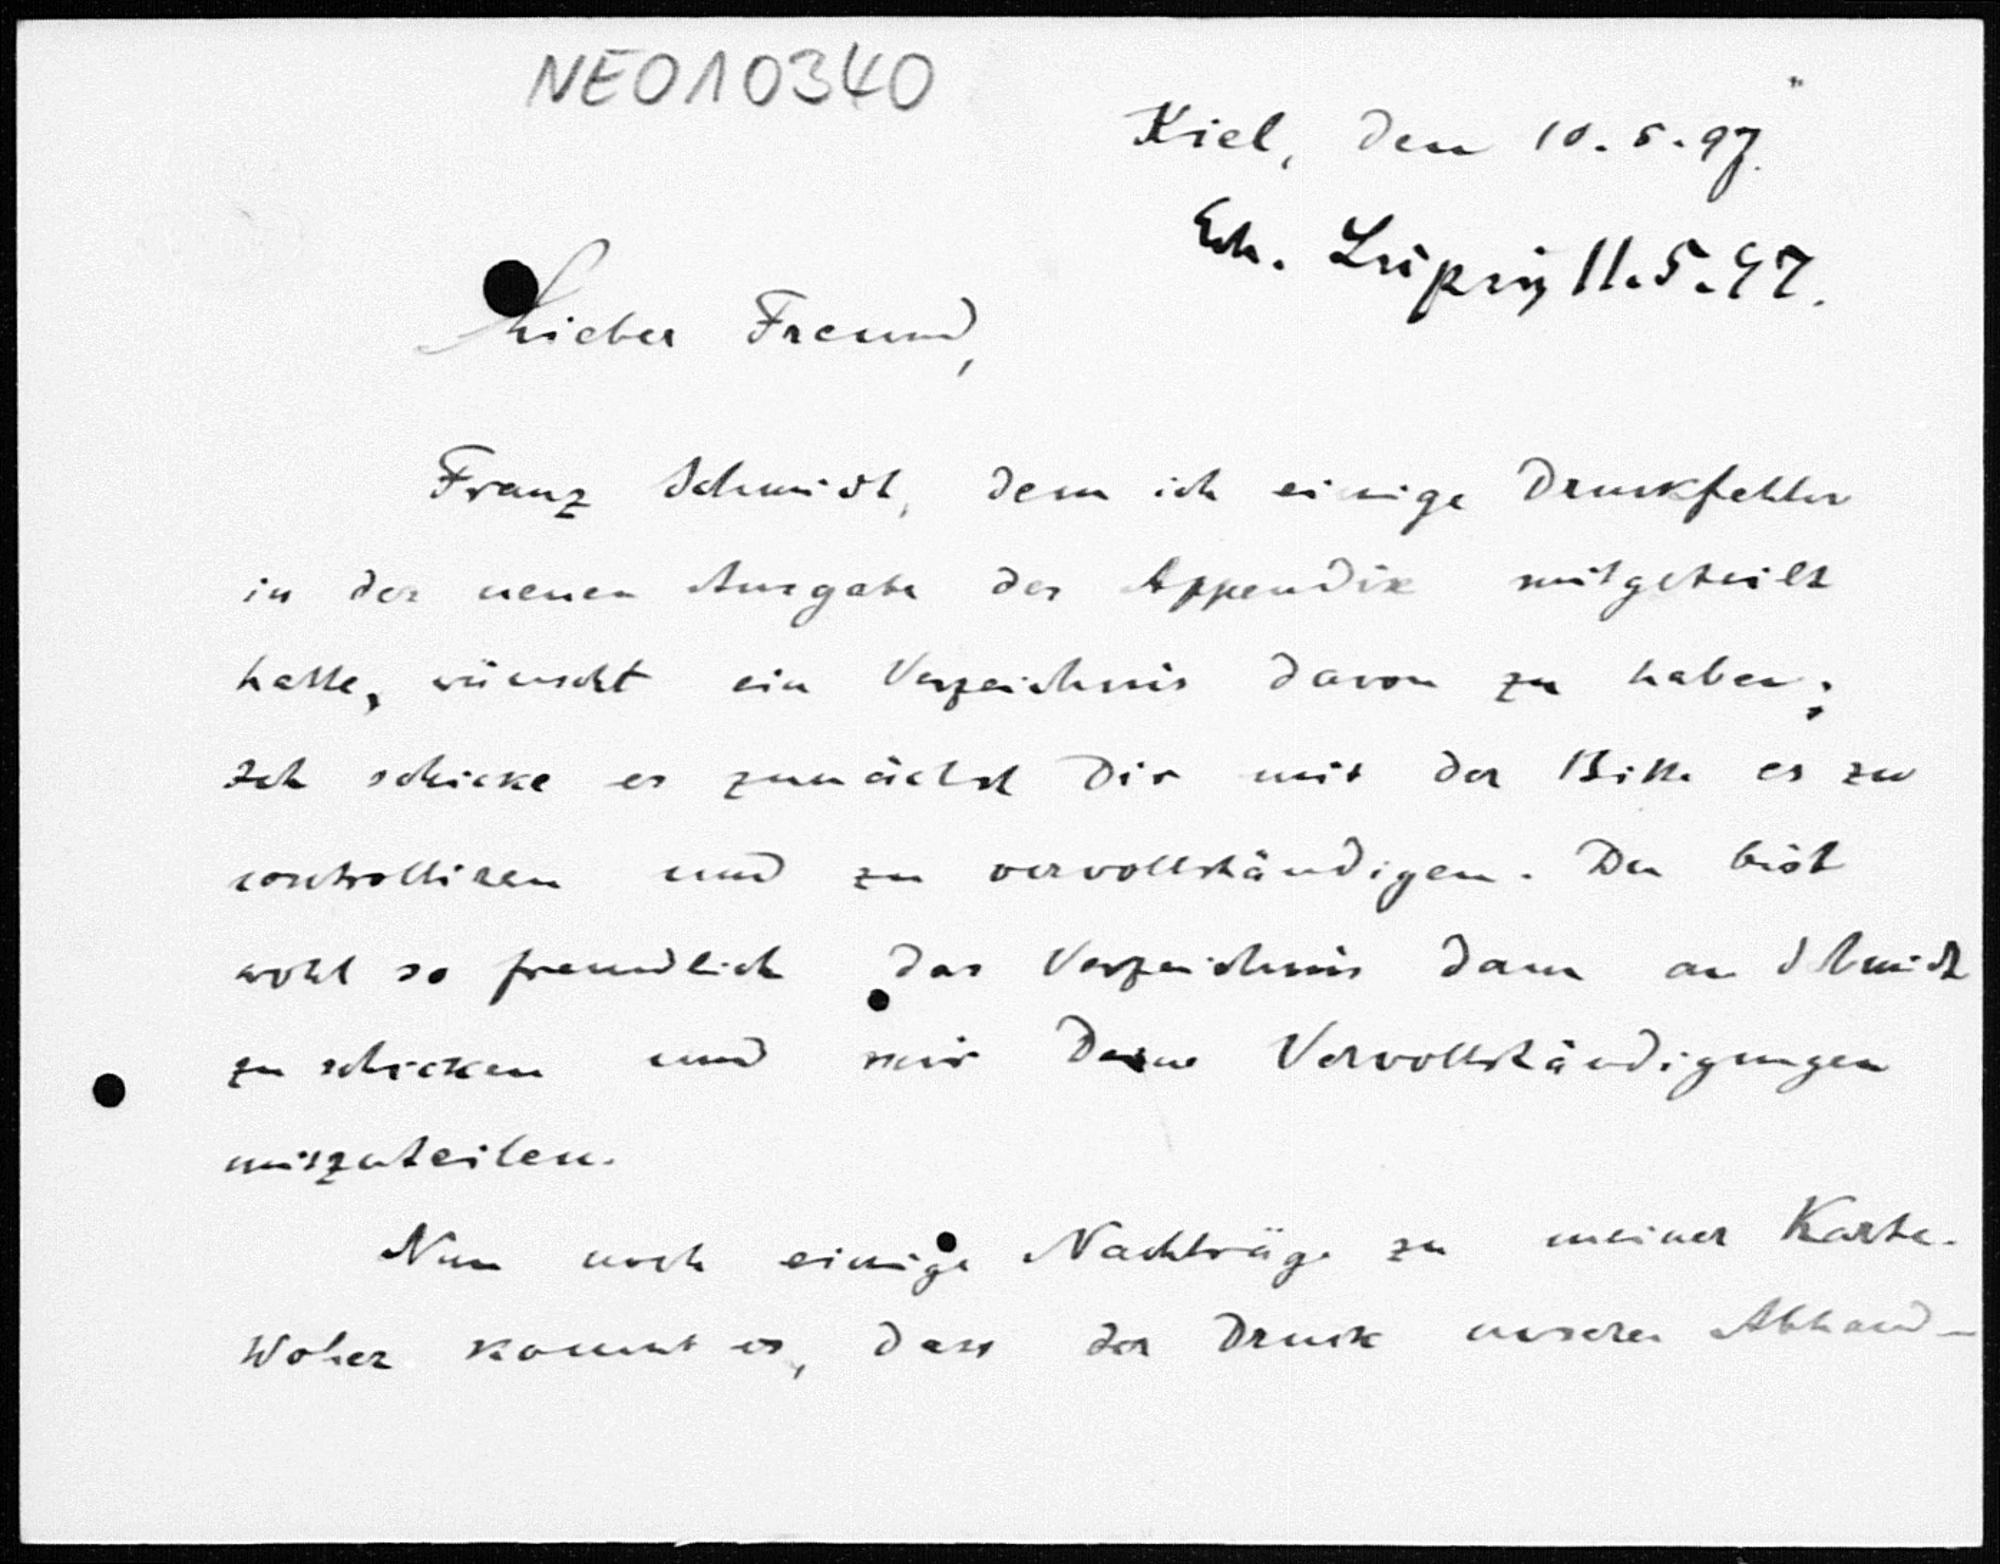 NE010340
Kiel, den 10.5.97.
Erh. Leipzig 11.5.97.
Lieber Freund,
Franz Schmidt, dem ich einige Druckfehler
in der neuen Ausgabe des Appendix mitgeteilt
hatte, wünscht ein Verzeichnis davon zu haben;
Ich schicke es zunächst Dir mit der Bitte es zu
controlliren und zu vervollständigen. Du bist
wohl so freundlich das Verzeichnis dann an Schmidt
zu schicken und mir Deine Vervollständigungen
mitzuteilen.
Nun noch einige Nachträge zu meiner Karte.
Woher kommt es, dass der Druck unserer Abhand-